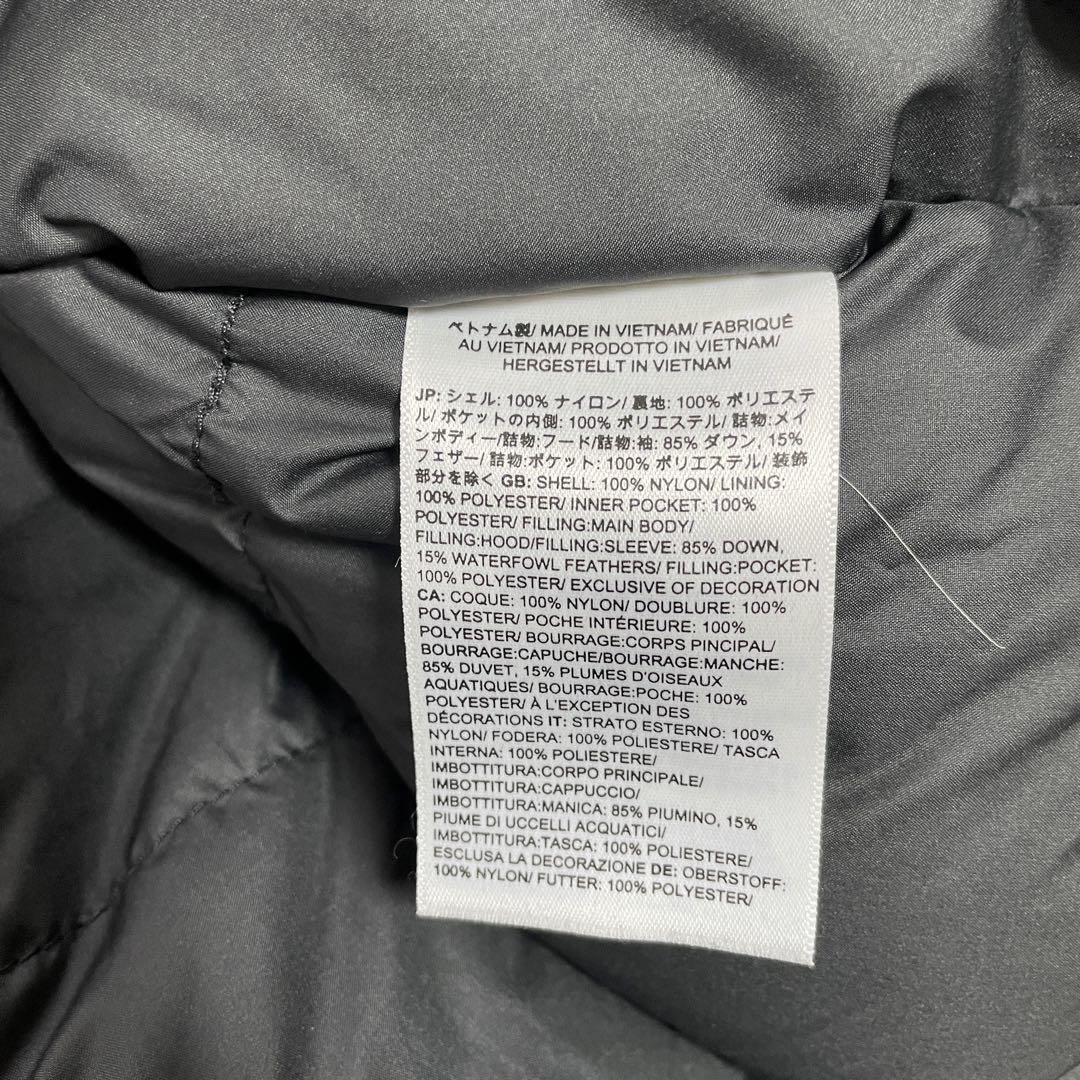 ベトナム製/ MADE IN VIETNAM/ FABRIQUÉ
AU VIETNAM/ PRODOTTO IN VIETNAM/
HERGESTELLT IN VIETNAM
JP: シェル: 100% ナイロン/ 裏地: 100% ポリエステ
ル/ ポケットの内側: 100% ポリエステル/ 詰物:メイ
ンボディー/詰物:フード/詰物:袖: 85% ダウン, 15%
フェザー/ 詰物:ポケット: 100% ポリエステル/ 装飾
部分を除く GB: SHELL: 100% NYLON/ LINING:
100% POLYESTER/ INNER POCKET: 100%
POLYESTER/ FILLING:MAIN BODY/
FILLING:HOOD/FILLING:SLEEVE: 85% DOWN,
15% WATERFOWL FEATHERS/ FILLING:POCKET:
100% POLYESTER/ EXCLUSIVE OF DECORATION
CA: COQUE: 100% NYLON/ DOUBLURE: 100%
POLYESTER/ POCHE INTÉRIEURE: 100%
POLYESTER/ BOURRAGE:CORPS PINCIPAL/
BOURRAGE:CAPUCHE/BOURRAGE:MANCHE:
85% DUVET, 15% PLUMES D'OISEAUX
AQUATIQUES/ BOURRAGE:POCHE: 100%
POLYESTER/ À L'EXCEPTION DES
DÉCORATIONS IT: STRATO ESTERNO: 100%
NYLON/ FODERA: 100% POLIESTERE/ TASCA
INTERNA: 100% POLIESTERE/
IMBOTTITURA:CORPO PRINCIPALE/
IMBOTTITURA:CAPPUCCIO/
IMBOTTITURA:MANICA: 85% PIUMINO, 15%
PIUME DI UCCELLI ACQUATICI/
IMBOTTITURA:TASCA: 100% POLIESTERE/
ESCLUSA LA DECORAZIONE DE: OBERSTOFF:
100% NYLON/ FUTTER: 100% POLYESTER/